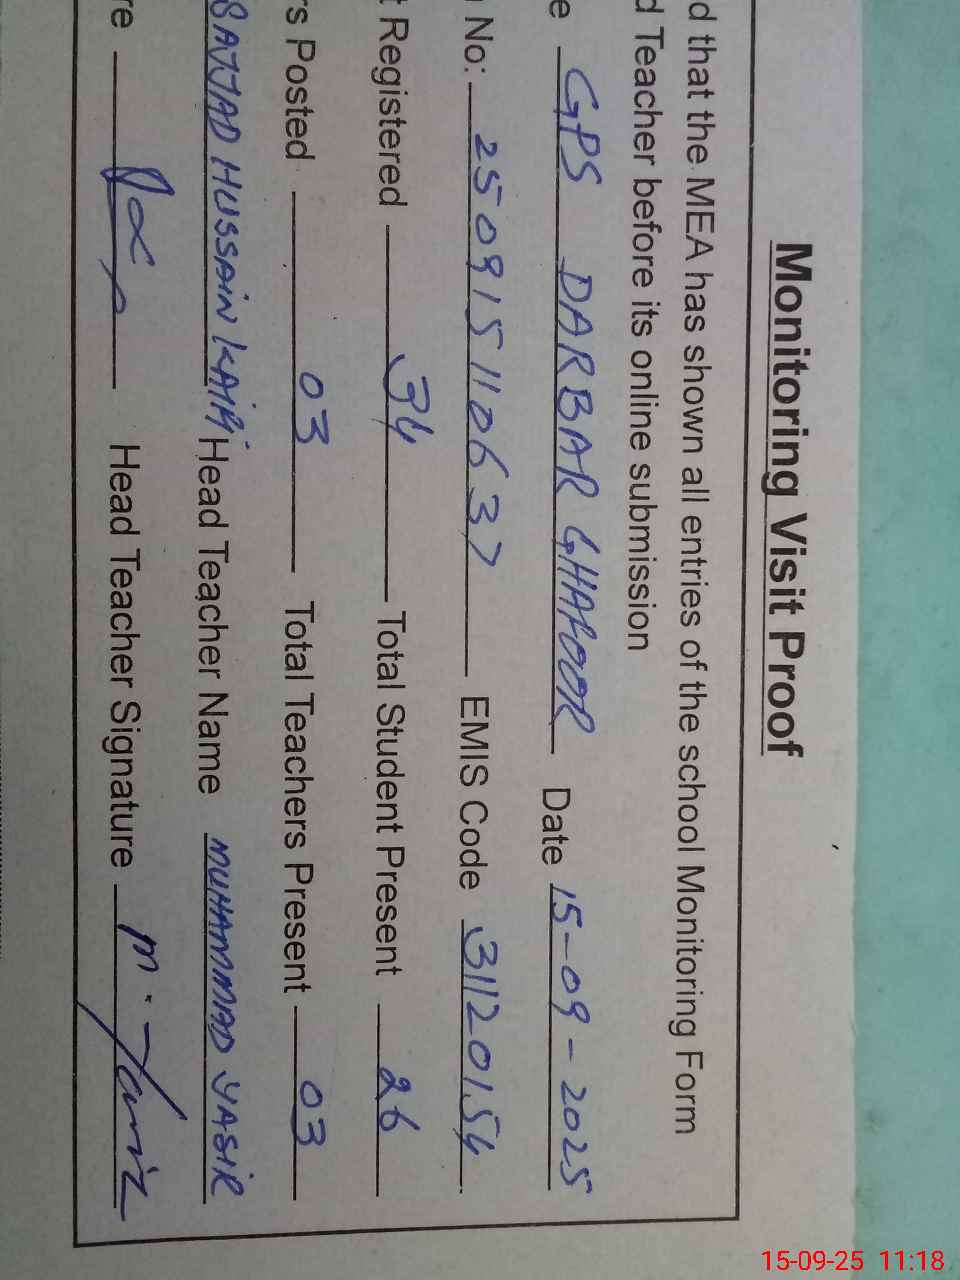 Monitoring Visit Proof
d that the MEA has shown all entries of the school Monitoring Form
d Teacher before its online submission
e GPS DARBAR GHAFOOR Date 15-09-2025
No: 2509151110637 EMIS Code 31120154
t Registered 34 Total Student Present 26
rs Posted 03 Total Teachers Present 03
SAJJAD HUSSAIN Head Teacher Name MUHAMMAD YASIR
re Head Teacher Signature
15-09-25 11:18